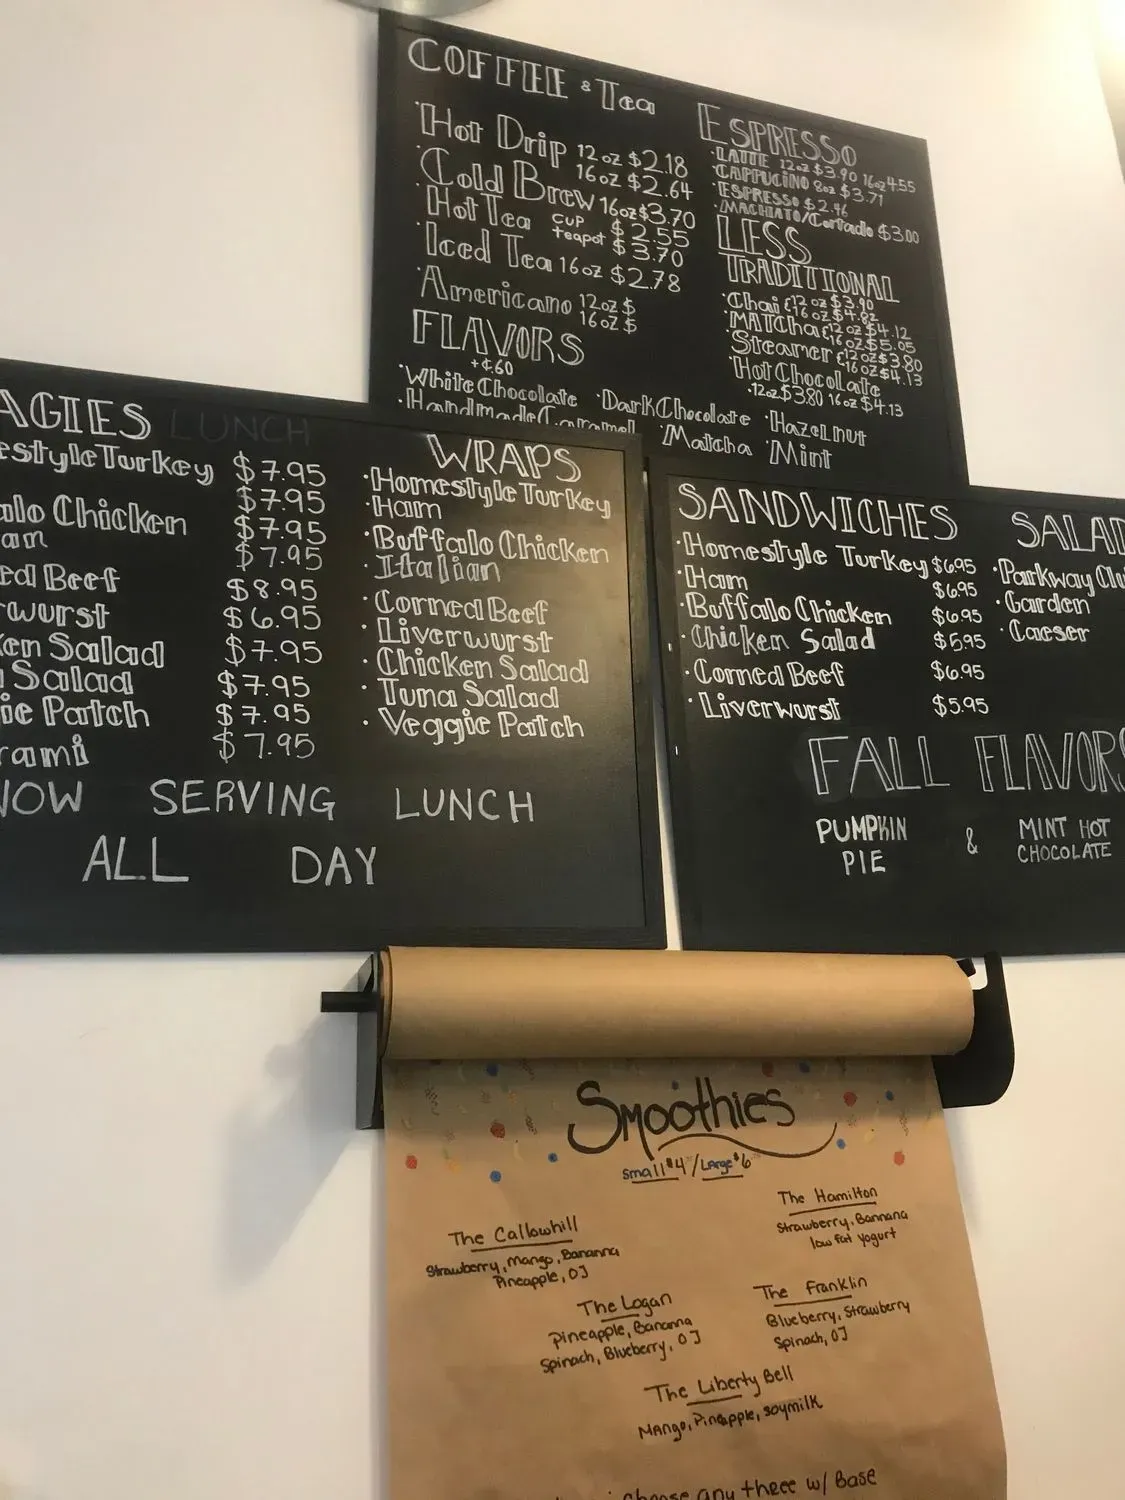 COFFEE & Tea
·Hot Drip 12oz $2.18
16oz $2.64
·Cold Brew 16oz $3.70
·Hot Tea cup $2.55
teapot $3.70
·Iced Tea 16oz $2.78
·Americano 12oz $
16oz $
FLAVORS
+¢.60
·White Chocolate ·Dark Chocolate ·Hazelnut
·Handmade Caramel ·Matcha ·Mint
ESPRESSO
·LATTE 12oz $3.90 16oz 4.55
·CAPPUCINO 8oz $3.71
·ESPRESSO $2.46
·MACHIATO/Cortado $3.00
LESS
TRADITIONAL
·Chai 12oz $3.90
16oz $4.82
·MATCha 12oz $4.12
16oz $5.05
·Steamer 12oz $3.80
16oz $4.13
·Hot Chocolate
·12oz $3.80 16oz $4.13
AGIES LUNCH
estyle Turkey $7.95
$7.95
alo Chicken $7.95
am $7.95
ed Beef $8.95
rwurst $6.95
ken Salad $7.95
Salad $7.95
ie Patch $7.95
rami $7.95
WRAPS
·Homestyle Turkey
·Ham
·Buffalo Chicken
·Italian
·Corned Beef
·Liverwurst
·Chicken Salad
·Tuna Salad
·Veggie Patch
NOW SERVING LUNCH
ALL DAY
SANDWICHES
·Homestyle Turkey $6.95
·Ham $6.95
·Buffalo Chicken $6.95
·Chicken Salad $5.95
·Corned Beef $6.95
·Liverwurst $5.95
SALAD
·Parkway Clu
·Garden
·Caeser
FALL FLAVORS
PUMPKIN PIE & MINT HOT CHOCOLATE
Smoothies
small $4 / Large $6
The Callowhill
Strawberry, Mango, Bananna
Pineapple, OJ
The Hamilton
Strawberry, Bannana
low fat yogurt
The Logan
Pineapple, Bananna
Spinach, Blueberry, OJ
The Franklin
Blueberry, Strawberry
Spinach, OJ
The Liberty Bell
Mango, Pineapple, soymilk
choose any three w/ Base